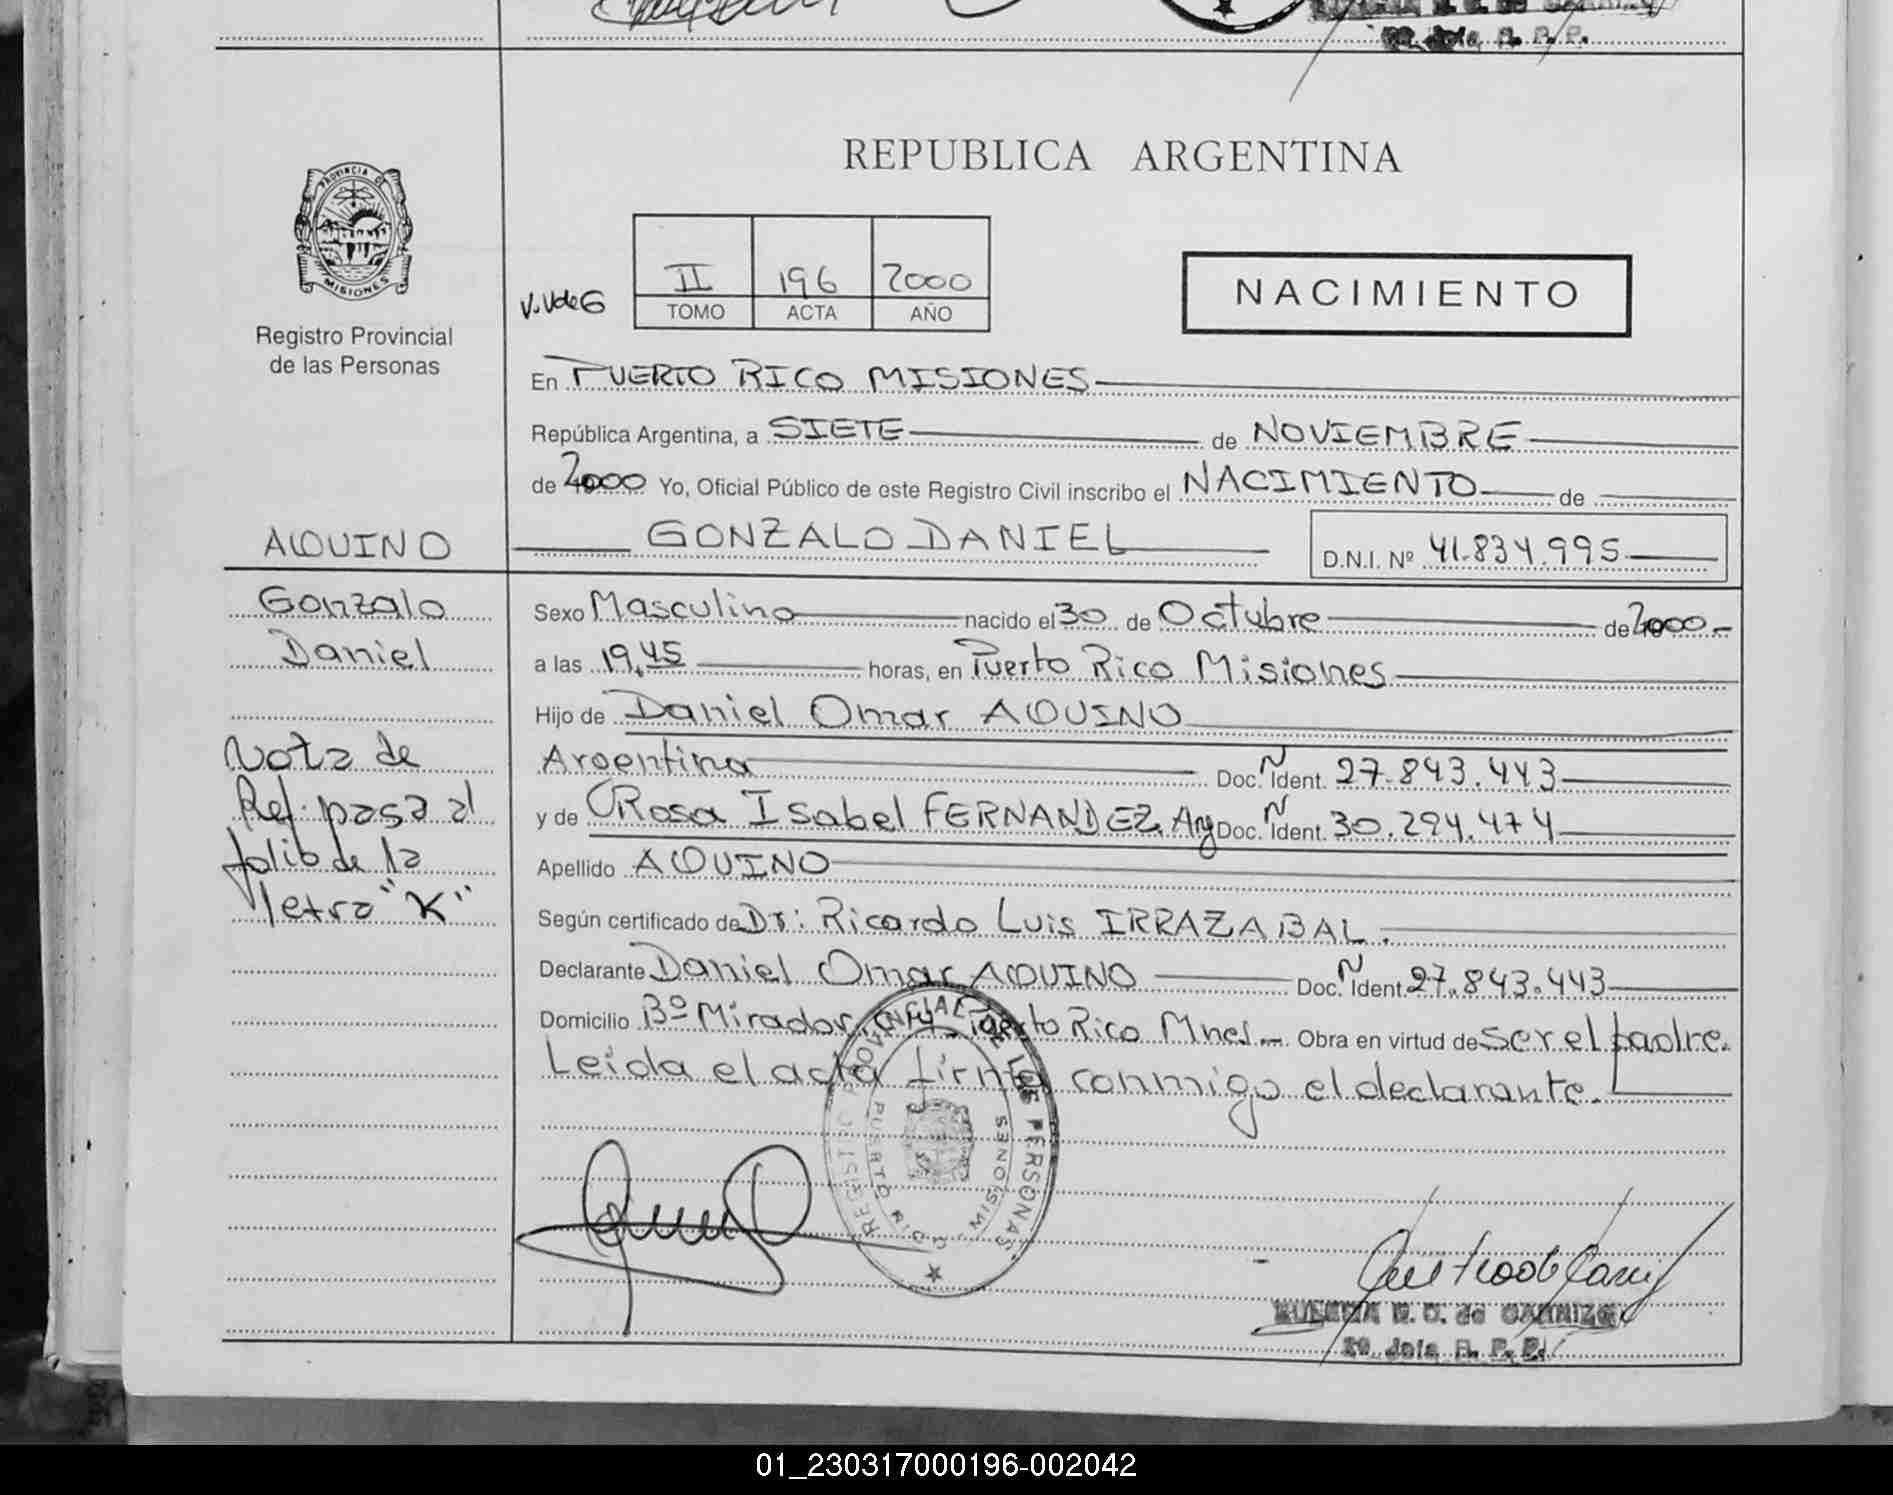 REPUBLICA ARGENTINA
PROVINCIA DE
MISIONES
Registro Provincial
de las Personas
II 196 2000
V.VdeG
TOMO ACTA AÑO
NACIMIENTO
En PUERTO RICO MISIONES
República Argentina, a SIETE de NOVIEMBRE
de 2000 Yo, Oficial Público de este Registro Civil inscribo el NACIMIENTO de
AQUINO
GONZALO DANIEL
D.N.I. Nº 41.834.995
Gonzalo
Daniel
Sexo Masculino nacido el 30 de Octubre de 2000.-
a las 19,45 horas, en Puerto Rico Misiones
Hijo de Daniel Omar AQUINO
Argentina Doc. N Ident. 27.843.443
y de Rosa Isabel FERNANDEZ. Arg Doc. N Ident. 30.294.474
Apellido AQUINO
Según certificado de Dr: Ricardo Luis IRRAZABAL.
Declarante Daniel Omar AQUINO Doc. N Ident. 27.843.443
Domicilio Bº Mirador, Puerto Rico Mnes.- Obra en virtud de ser el padre.
Leída el acta firma conmigo el declarante.
Nota de
Ref. pasa al
folio de la
letra "K"
REGISTRO PROVINCIAL DE LAS PERSONAS
PUERTO RICO - MISIONES
R. P. P.
01_230317000196-002042